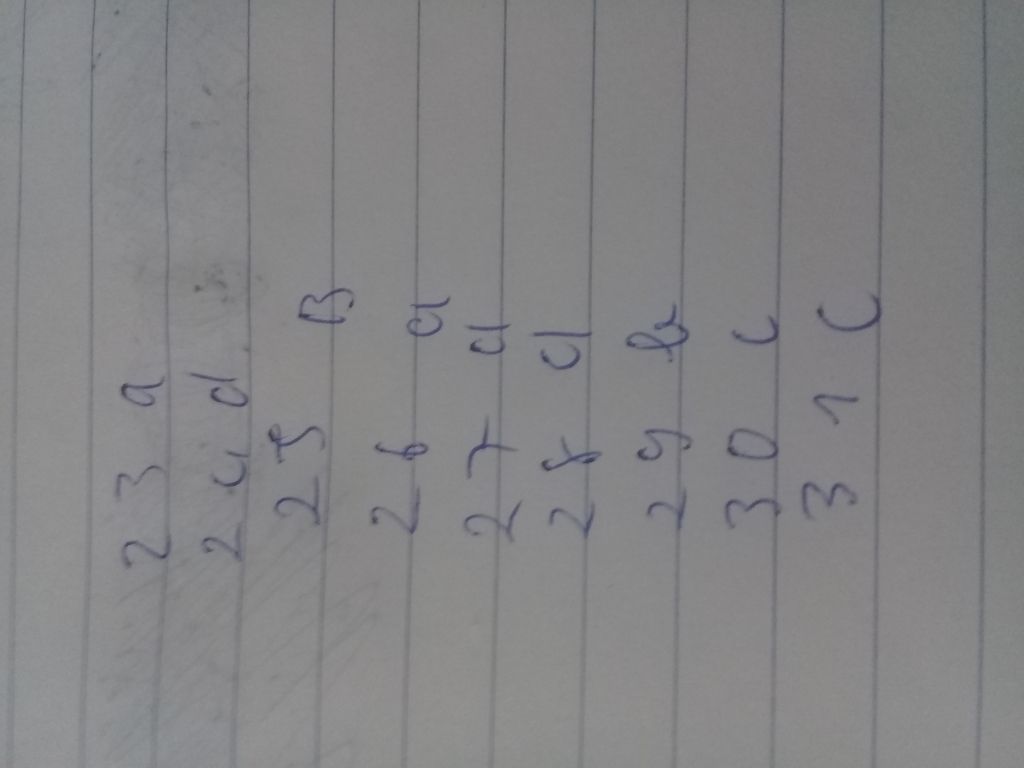 23 a
24 d
25 B
26 a
27 a
28 d
29 b
30 c
31 C